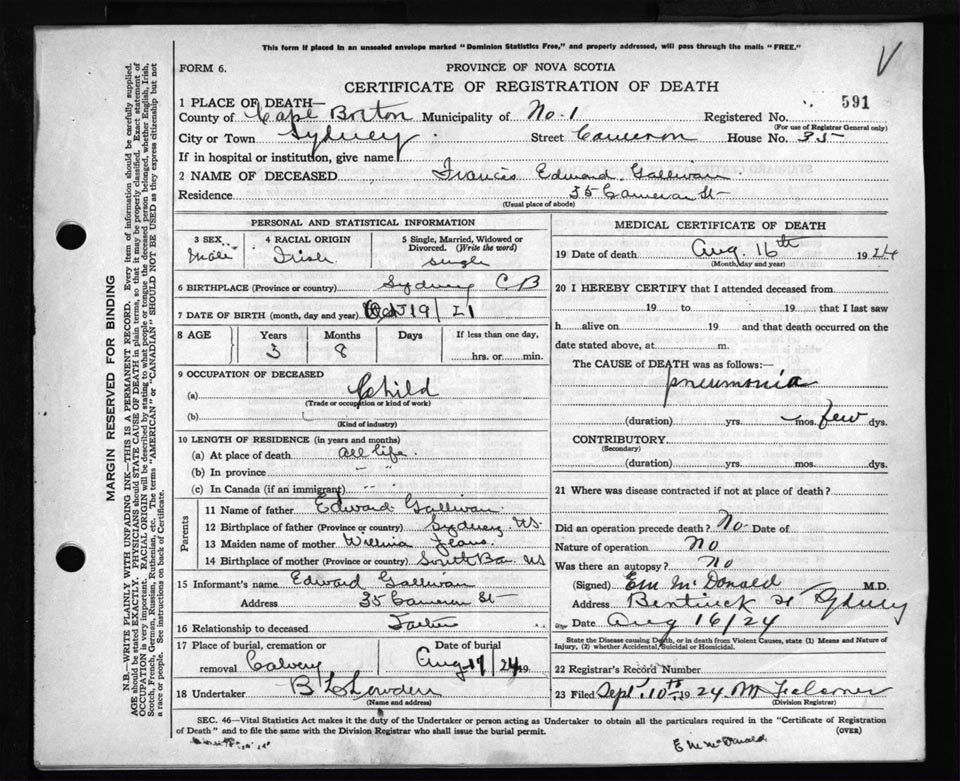 This form if placed in an unsealed envelope marked "Dominion Statistics Free," and properly addressed, will pass through the mails "FREE."
FORM 6.
PROVINCE OF NOVA SCOTIA
CERTIFICATE OF REGISTRATION OF DEATH
1 PLACE OF DEATH—
591
County of Cape Breton Municipality of No. 1 Registered No.
(For use of Registrar General only)
City or Town Sydney Street Cameron House No. 35
If in hospital or institution, give name
2 NAME OF DECEASED Francis Edward Galliwan
Residence 35 Cameron St
(Usual place of abode)
PERSONAL AND STATISTICAL INFORMATION
3 SEX 4 RACIAL ORIGIN 5 Single, Married, Widowed or Divorced. (Write the word)
Male Irish single
6 BIRTHPLACE (Province or country) Sydney C B
7 DATE OF BIRTH (month, day and year) 19/21
8 AGE Years Months Days If less than one day,
3 8 hrs. or min.
9 OCCUPATION OF DECEASED
(a) Child
(Trade or occupation or kind of work)
(b)
(Kind of industry)
10 LENGTH OF RESIDENCE (in years and months)
(a) At place of death all life
(b) In province " "
(c) In Canada (if an immigrant) " "
Parents
11 Name of father Edward Galliwan
12 Birthplace of father (Province or country) Sydney NS.
13 Maiden name of mother
14 Birthplace of mother (Province or country) South Bar NS
15 Informant's name Edward Galliwan
Address 35 Cameron St
16 Relationship to deceased Father
17 Place of burial, cremation or removal Date of burial
Calvery Aug 17/24 19
18 Undertaker
(Name and address)
MEDICAL CERTIFICATE OF DEATH
19 Date of death Aug. 16th 1924
(Month, day and year)
20 I HEREBY CERTIFY that I attended deceased from
19 to 19 that I last saw
h alive on 19 and that death occurred on the
date stated above, at m.
The CAUSE OF DEATH was as follows:—
pneumonia
(duration) yrs. mos. few dys.
CONTRIBUTORY
(Secondary)
(duration) yrs. mos. dys.
21 Where was disease contracted if not at place of death?
Did an operation precede death? No Date of
Nature of operation No
Was there an autopsy? No
(Signed) E M McDonald M.D.
Address Bentinck St Sydney
Date Aug 16/24
State the Disease causing Death, or in death from Violent Causes, state (1) Means and Nature of
Injury, (2) whether Accidental, Suicidal or Homicidal.
22 Registrar's Record Number
23 Filed Sept. 10th 1924 M Falconer
(Division Registrar)
SEC. 46—Vital Statistics Act makes it the duty of the Undertaker or person acting as Undertaker to obtain all the particulars required in the "Certificate of Registration
of Death" and to file the same with the Division Registrar who shall issue the burial permit. (OVER)
E M McDonald
MARGIN RESERVED FOR BINDING
N.B.—WRITE PLAINLY WITH UNFADING INK—THIS IS A PERMANENT RECORD. Every item of information should be carefully supplied.
AGE should be stated EXACTLY. PHYSICIANS should STATE CAUSE OF DEATH in plain terms, so that it may be properly classified. Exact statement of
OCCUPATION is very important. RACIAL ORIGIN will be described by stating to what people or tongue the deceased person belonged, whether English, Irish,
Scotch, French, German, Russian, Ruthenian, etc. The terms "AMERICAN" or "CANADIAN" SHOULD NOT BE USED as they express citizenship but not
a race or people. See instructions on back of Certificate.